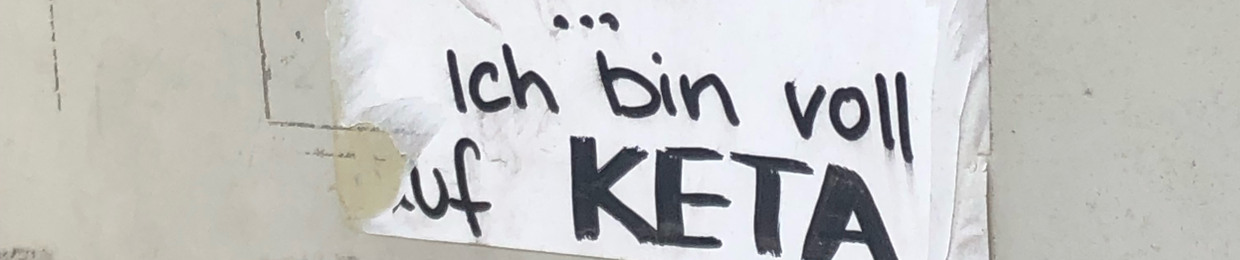 ...
Ich bin voll
auf KETA